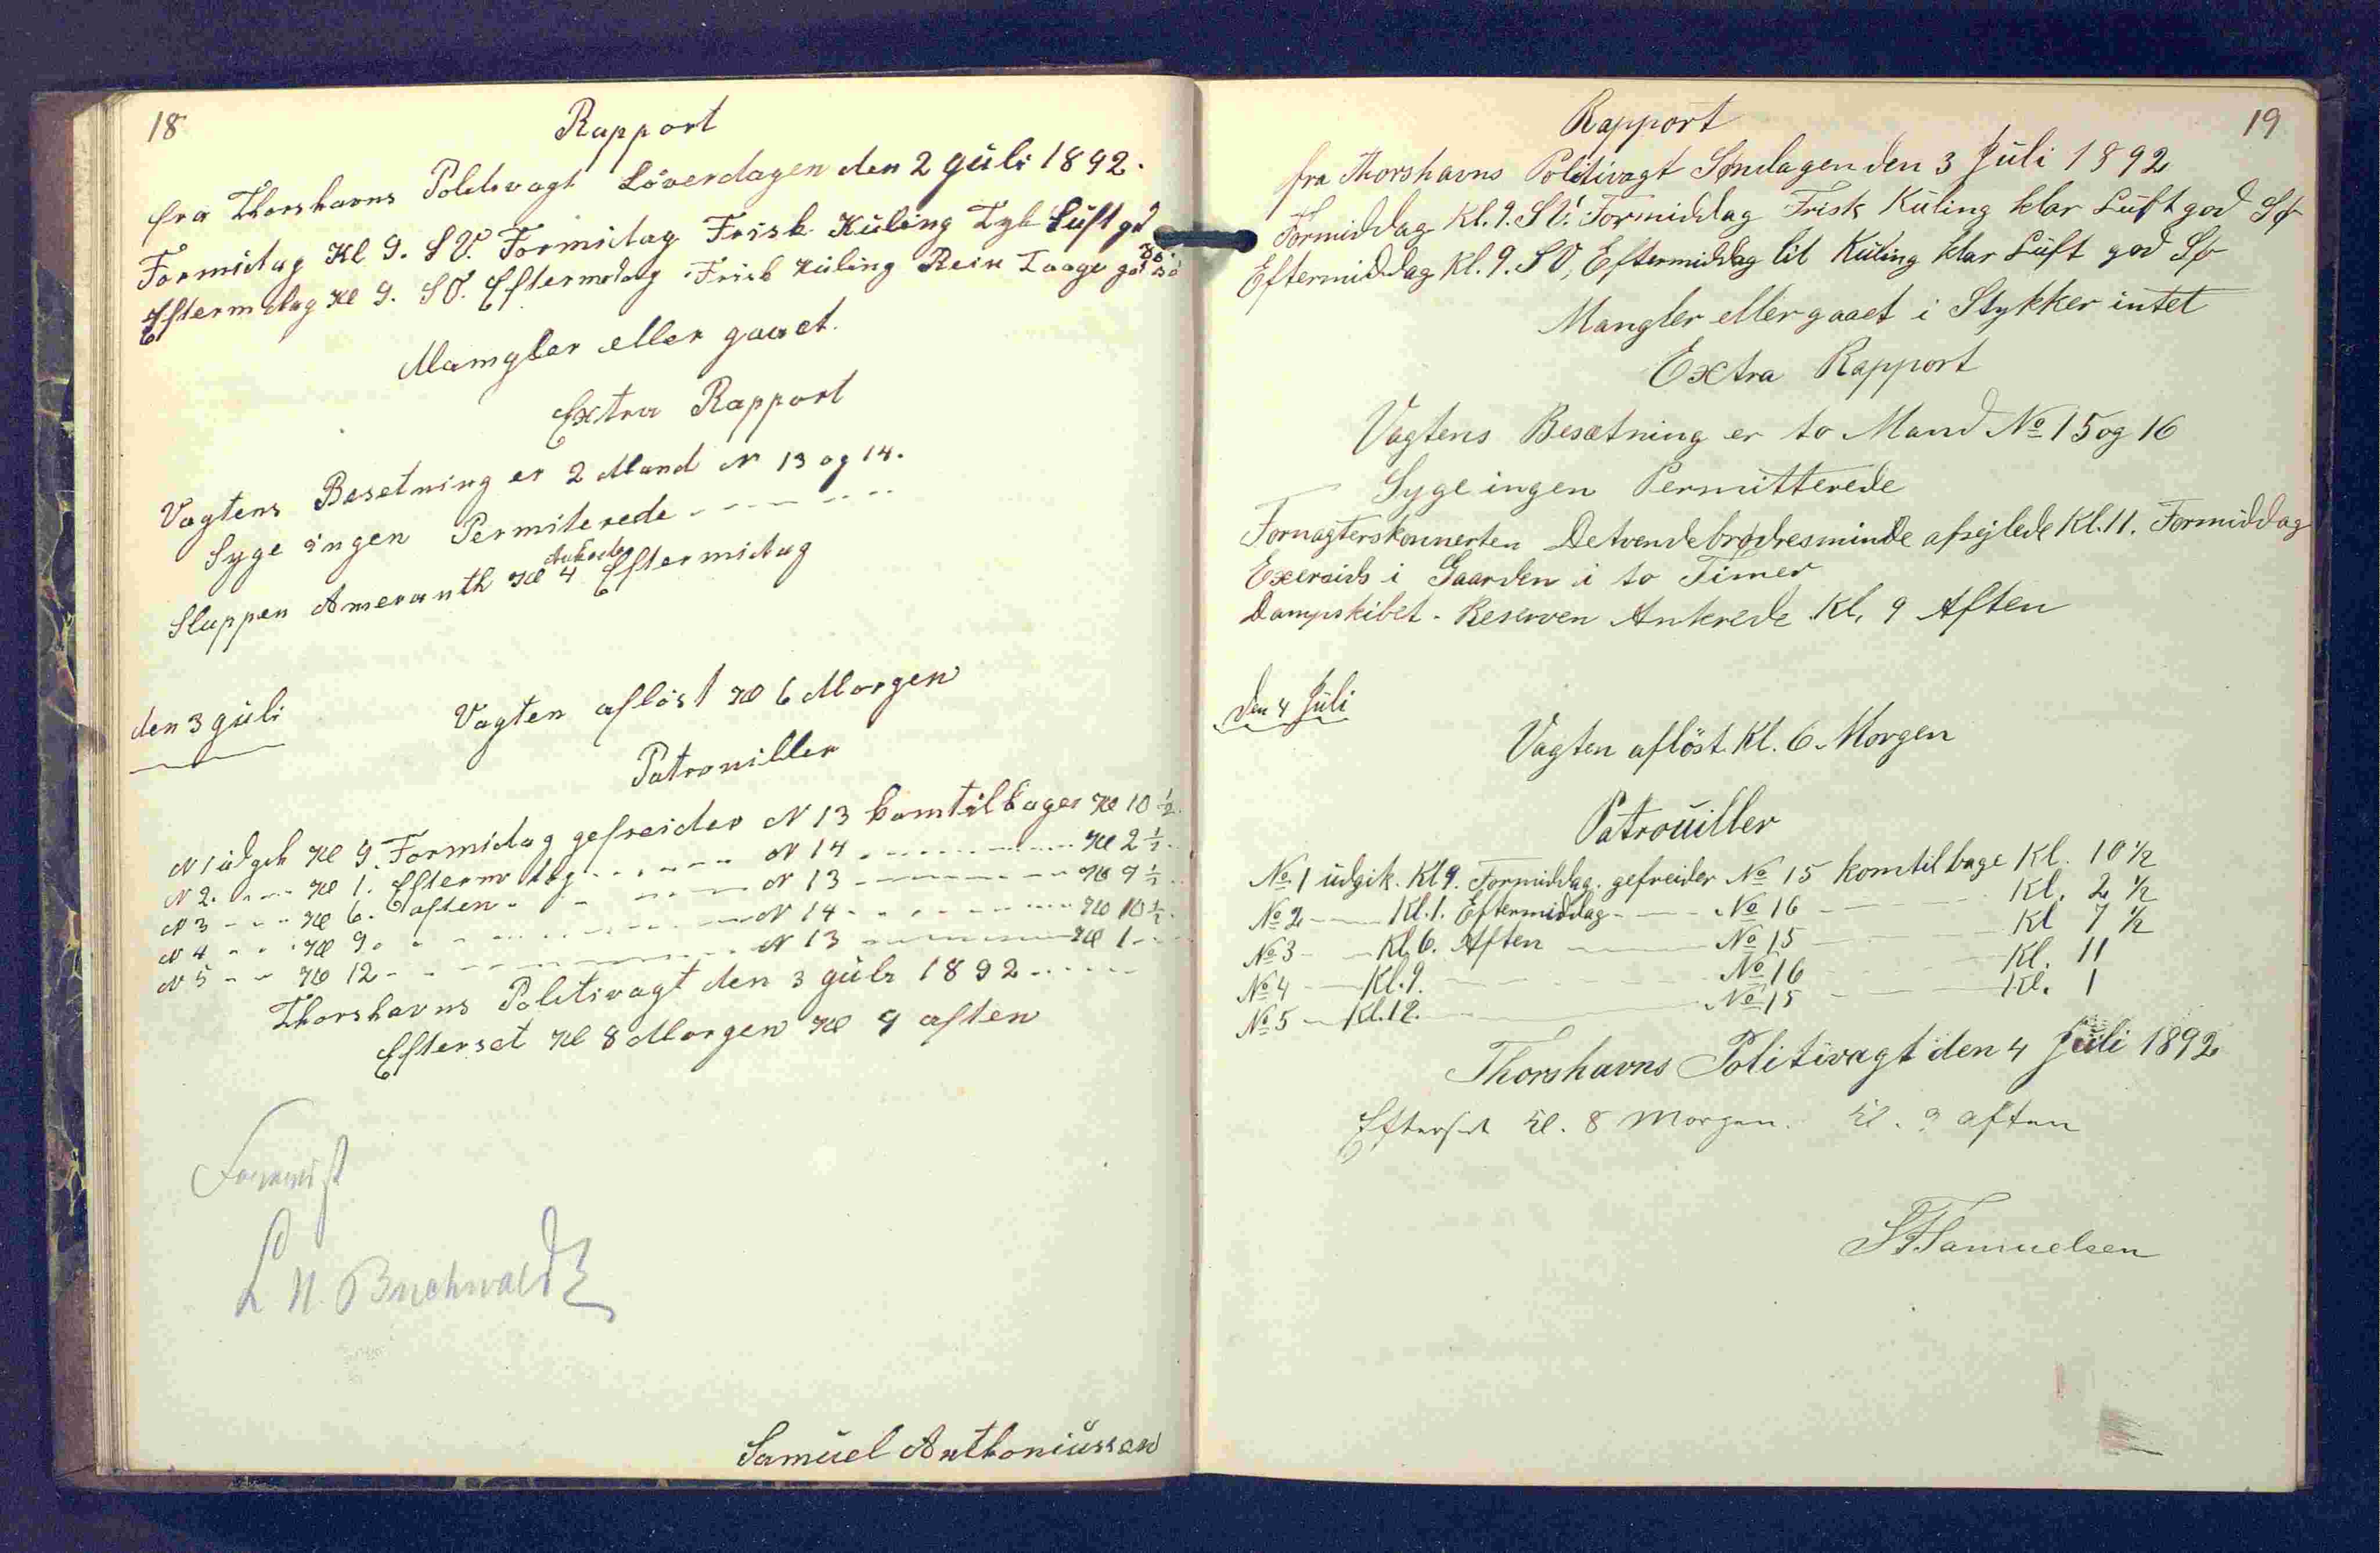 18
Rapport
fra Thorshavns Politivagt Löverdagen den 2 Juli 1892.
Formidag Kl 9. SV. Formidag Frisk Kuling Tyk Luft god Sö
Eftermidag Kl 9. SV. Eftermidag Frisk Kuling Rein Taage god sö
Mamgler eller gaaet.
Extra Rapport
Vagtens Besetning er 2 Mand N 13 og 14.
Syge ingen Permiterede
Sluppen Ameranth Kl 4 Ankrede Eftermidag
den 3 Juli
Vagten aflöst Kl 6 Morgen
Patrouiller
N 1 udgik Kl 9. Formidag gefreider N 13 kom tilbage Kl 10 ½
N 2. Kl 1. Eftermidag N 14 Kl 2 ½
N 3 Kl 6. aften N 13 Kl 7 ½
N 4 Kl 9. N 14 Kl 10 ½
N 5 Kl 12 N 13 Kl 1
Thorshavns Politivagt den 3 Juli 1892
Efterset Kl 8 Morgen Kl 9 aften
L N. Buchwaldt
Samuel Anthoniussen
19
Rapport
fra Thorshavns Politivagt Søndagen den 3 Juli 1892
Formiddag Kl. 9. SV. Formiddag Frisk Kuling klar Luft god Sø
Eftermiddag Kl. 9. SV, Eftermiddag lit Kuling klar Luft god Sø
Mangler eller gaaet i Stykker intet
Extra Rapport
Vagtens Besætning er to Mand No 15 og 16
Syge ingen Permitterede
Fornagterskonnerten Detvendebrødresminde afsejlede Kl. 11. Formiddag
Exersids i Gaarden i to Timer
Dampskibet - Reserven Ankrede Kl. 9 Aften
Den 4 Juli
Vagten aflöst Kl. 6. Morgen
Patrouiller
No 1 udgik. Kl 9. Formiddag. gefreider No 15 komtilbage Kl. 10 ½
No 2 Kl. 1. Eftermiddag No 16 Kl. 2 ½
No 3 Kl. 6. Aften No 15 Kl 7 ½
No 4 Kl. 9. No 16 Kl. 11
No 5 Kl. 12. No 15 Kl. 1
Thorshavns Politivagt den 4 Juli 1892
Efterset Kl. 8 Morgen. Kl. 9 aften
SFSamuelsen